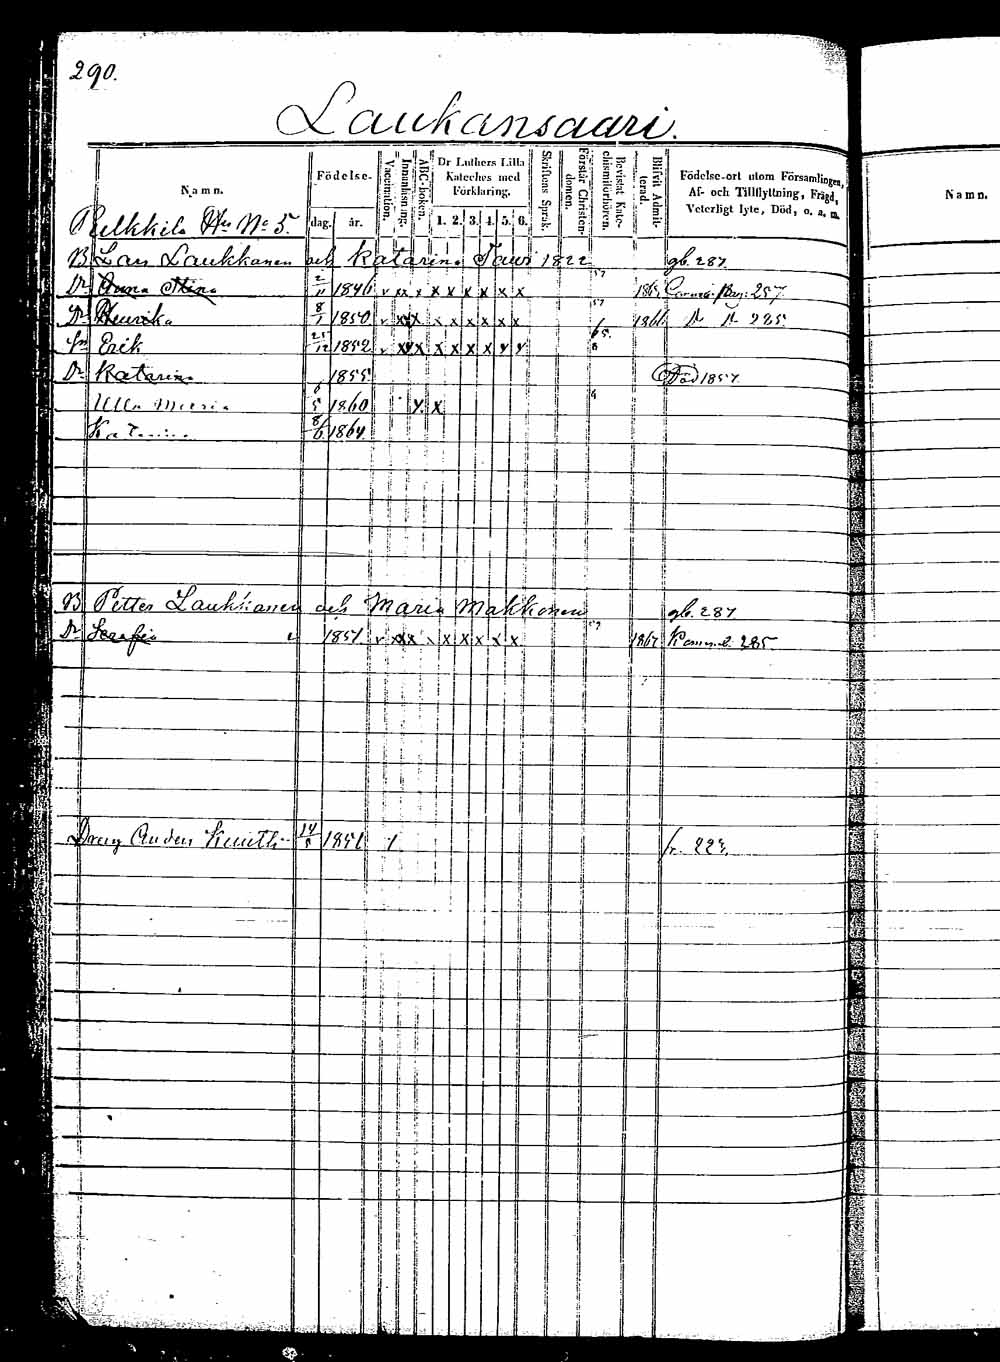 290.
Laukansaari.
Namn.
Födelse-
dag. år.
Vaccination.
Innanläsning.
ABC-boken.
Dr Luthers Lilla Kateches med Förklaring.
1. 2. 3. 4. 5. 6.
Skriftens Språk.
Förstår Christendomen.
Bevistat Katechismiförhören.
Blifvit Admitterad.
Födelse-ort utom Församlingen, Af- och Tillflyttning, Frägd, Veterligt lyte, Död, o. s. m.
Namn.
No 5.
B Lars Laukkanen och Katarina Tauri 1822 gb. 287
Dr Anna Stina 2/11 1846 v xx x x x x x x x 57 1865 257.
Dr Henrika 8/1 1850 v xx x x x x x x x 57 1866 285.
Sn Erik 25/12 1852 v xx x x x x x y y 65. 8
Dr Katarina 1855 Död 1857
Ulla Maria 6/5 1860 x x 9
Katarina 8/6 1864.
B Petter Laukkanen och Maria Makkonen gb. 287
Dr Serafia 1851. v xx x x x x x x x 57 1867 285
Dräng 14/5 1851 1 fr. 223.